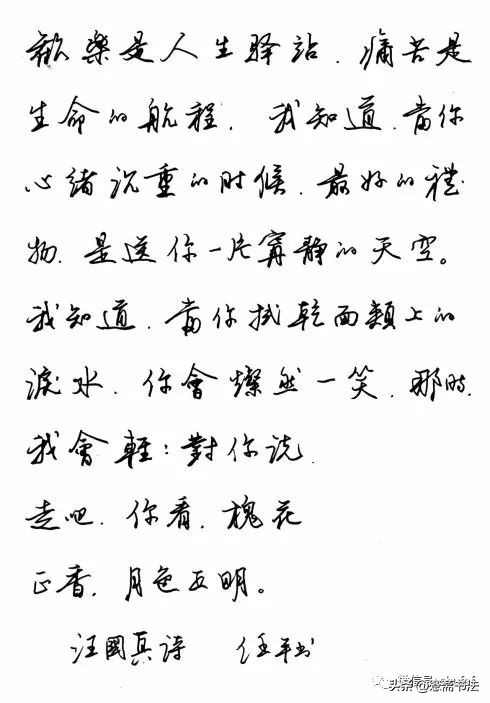 歡樂是人生驿站．痛苦是
生命的航程．我知道．當你
心緒沉重的时候．最好的禮
物．是送你一片寧静的天空。
我知道．當你拭乾面頰上的
淚水．你會燦然一笑．那時．
我會輕：對你说．
走吧．你看．槐花
正香．月色正明。
汪國真詩 任平书
头条@意斋书法